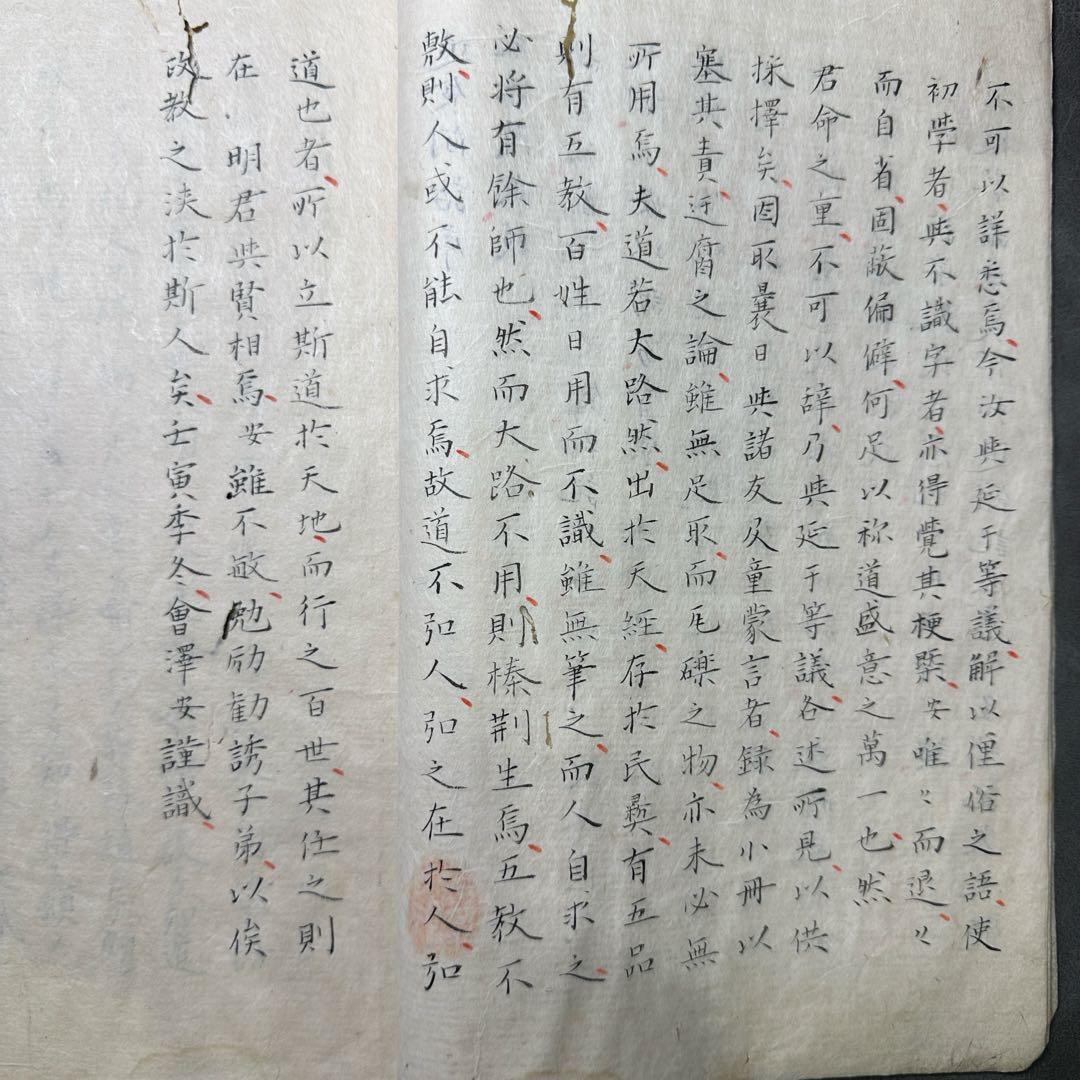 不可以詳悉焉、今汝與延于等議、解以俚俗之語、使
初學者、與不識字者、亦得覺其梗槩、安唯〻而退、〻
而自省、固蔽偏僻、何足以称道盛意之萬一也、然
君命之重、不可以辞、乃與延于等議、各述所見、以供
採擇矣、因取曩日與諸友及童蒙言者、録為小冊以
塞其責、迂腐之論、雖無足取、而瓦礫之物、亦未必無
所用焉、夫道若大路然、出於天經、存於民彝、有五品
則有五教、百姓日用而不識、雖無筆之、而人自求之、
必將有餘師也、然而大路不用、則榛荆生焉、五教不
敷、則人或不能自求焉、故道不弘人、弘之在於人、弘
道也者、所以立斯道於天地、而行之百世、其任之則
在 明君與賢相焉、安雖不敏、勉励勸誘子弟、以俟
政教之浹於斯人矣、壬寅季冬、會澤安謹識、